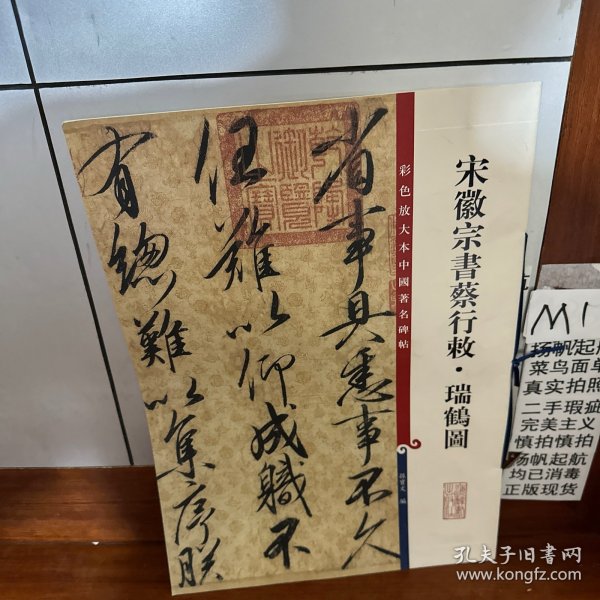 宋徽宗書蔡行敕·瑞鶴圖
彩色放大本中國著名碑帖
孫寶文 編
省事具悉事不久
任難以仰成職不
有總難以集序朕
乾隆御覽之寶
M1
扬帆起航
菜鸟面单
真实拍照
二手瑕疵
完美主义
慎拍慎拍
扬帆起航
均已消毒
正版现货
孔夫子旧书网
www.kongfz.com